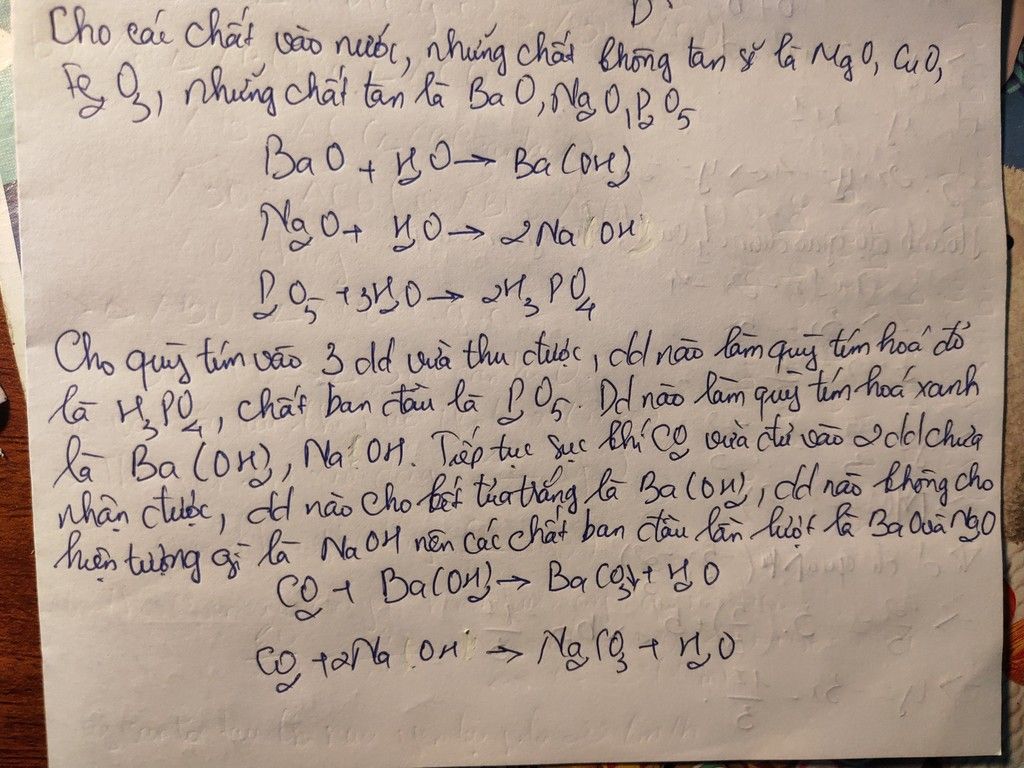 Cho các chất vào nước, những chất không tan sẽ là MgO, CuO,
Fe2O3, những chất tan là BaO, Na2O, P2O5
BaO + H2O → Ba(OH)2
Na2O + H2O → 2NaOH
P2O5 + 3H2O → 2H3PO4
Cho quỳ tím vào 3 dd vừa thu được, dd nào làm quỳ tím hoá đỏ
là H3PO4, chất ban đầu là P2O5. Dd nào làm quỳ tím hoá xanh
là Ba(OH)2, NaOH. Tiếp tục sục khí CO2 vừa đủ vào 2 dd chưa
nhận được, dd nào cho kết tủa trắng là Ba(OH)2, dd nào không cho
hiện tượng gì là NaOH nên các chất ban đầu lần lượt là BaO và Na2O
CO2 + Ba(OH)2 → BaCO3↓ + H2O
CO2 + 2NaOH → Na2CO3 + H2O